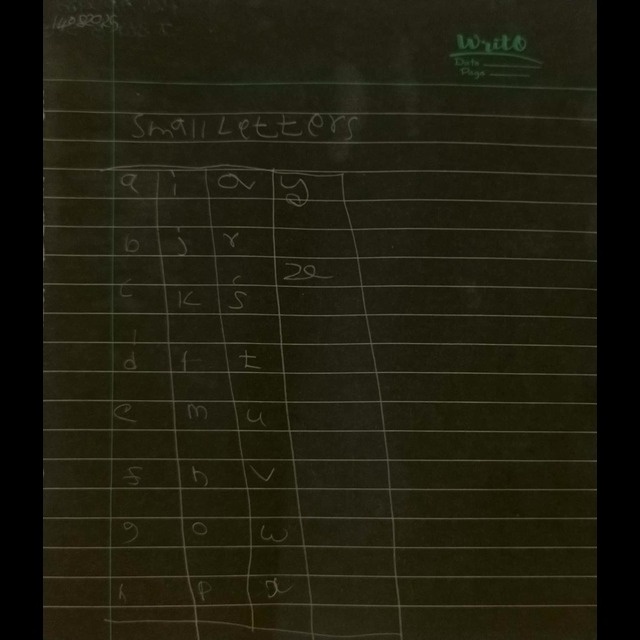 14052025
Write
Date
Page
Small Letters
a i q y
b j r
z
c k s
d l t
e m u
f n v
g o w
h p x